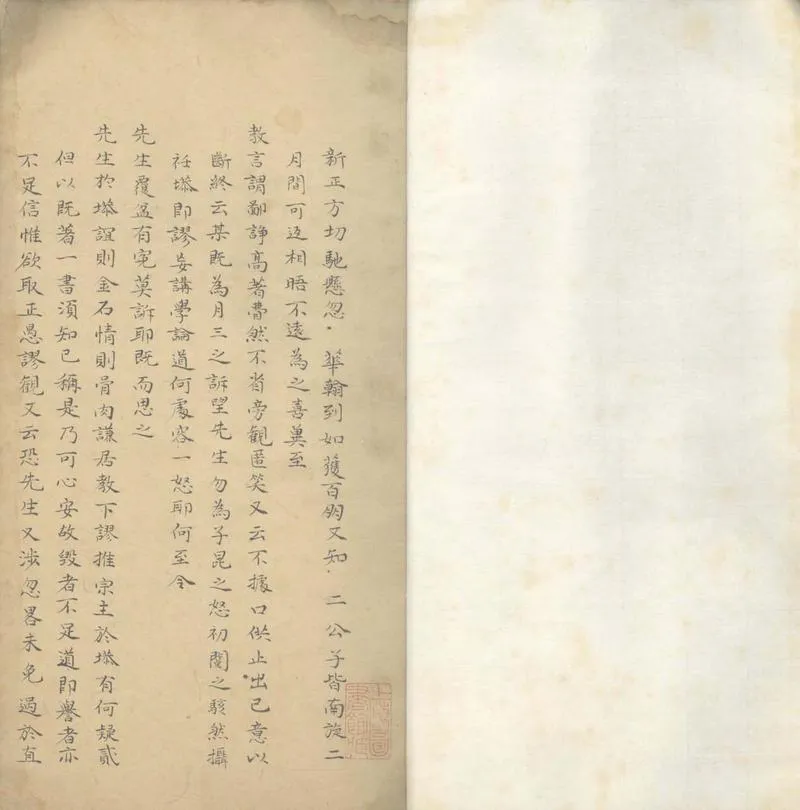 新正方切馳懸忽 華翰到如獲百朋又知 二公子皆南旋二
月間可返相晤不遠為之喜冀至
教言謂鄙諍高著費然不省旁觀匿笑又云不據口供止出已意以
斷終云某既為月三之訴望先生勿為子昆之怒初閱之駭然攝
衽㙮即謬妄講學論道何處容一怒耶何至令
先生覆盆有寃莫訴耶既而思之
先生於㙮誼則金石情則骨肉謙居教下謬推宗主於㙮有何疑貳
但以既著一書須知已稱是乃可心安故毀者不足道即譽者亦
不足信惟欲取正愚謬觀又云恐先生又涉忽畧未免過於直